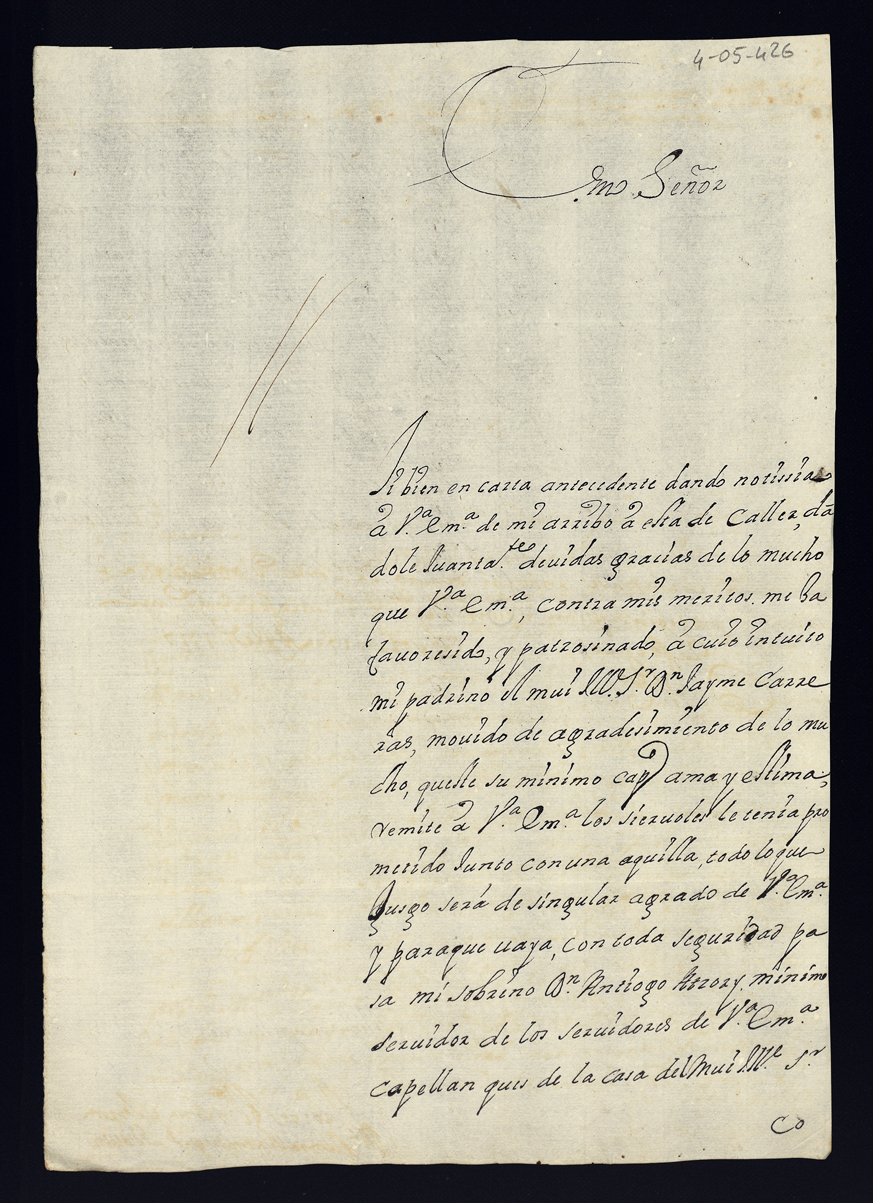 4-05-426
Emo. Señor
Si bien en carta antecedente dando notissia
à V.ª Em.ª de mi arribo à esta de Caller, dã
dole Juanta.te deuidas gracias de lo mucho
que V.ª Em.ª, contra mis meritos. me ha
fauoresido, y patrosinado, à cuio intuito
mi padrino el mui Ill.e S.r D.n Jayme Carre
ras, mouido de agradesimiento de lo mu
cho, queste su minimo cap.n ama y estima,
remite à V.ª Em.ª los sieruoles le tenia pro
metido Junto con una aquilla, todo loque
Jusgo será de singular agrado de V.ª Em.ª
y paraque uaya, con toda seguridad pa
sa mi sobrino D.n Antiogo Atzory minimo
seruidor de los seruidores de V.ª Em.ª
capellan ques de la casa del Mui Ill.e S.r
Co